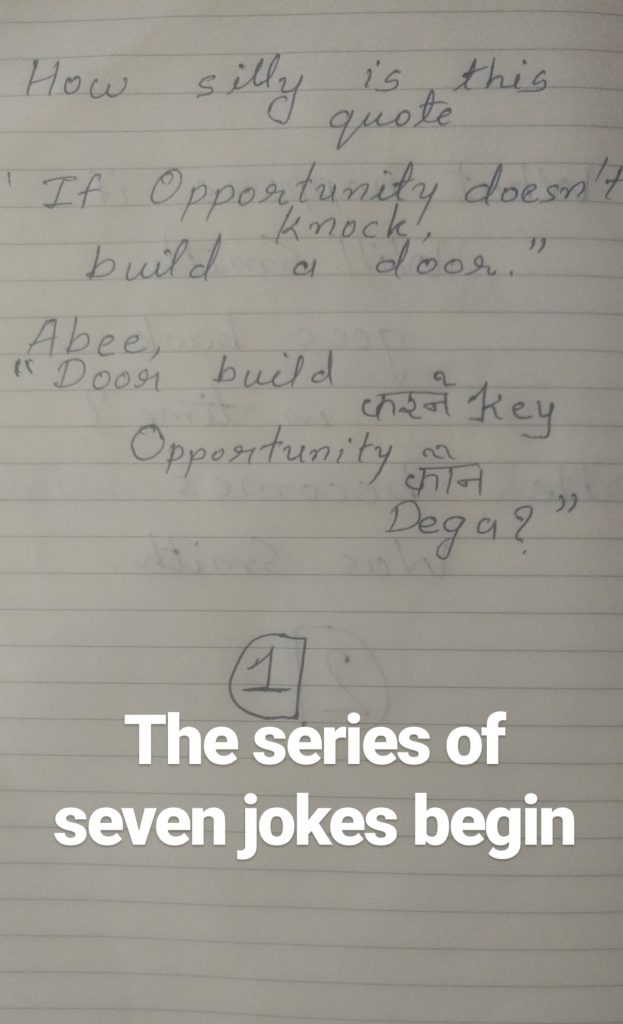 How silly is this
quote
' If Opportunity doesn't
knock,
build a door."
Abee,
"Door build
करने Key
Opportunity कौन
Dega?"
1
The series of
seven jokes begin